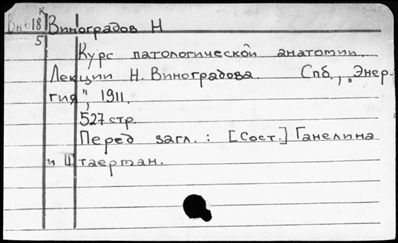 К
Вн 18 Виноградов Н
5
Курс патологической анатомии.
Лекции Н. Виноградова. Спб., „Энер-
гия", 1911.
527 стр.
Перед загл.: [Сост.] Ганелина
и Штаерман.